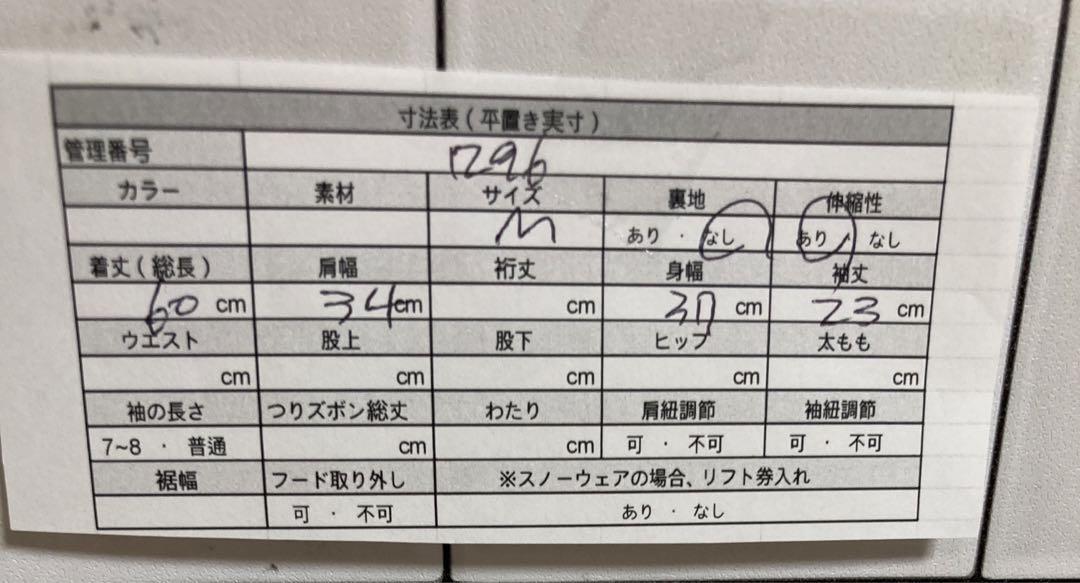 寸法表(平置き実寸)
管理番号 7296
カラー 素材 サイズ 裏地 伸縮性
M あり ・ なし あり ・ なし
着丈(総長) 肩幅 裄丈 身幅 袖丈
60 cm 34cm cm 37 cm 23 cm
ウエスト 股上 股下 ヒップ 太もも
cm cm cm cm cm
袖の長さ つりズボン総丈 わたり 肩紐調節 袖紐調節
7~8 ・ 普通 cm cm 可 ・ 不可 可 ・ 不可
裾幅 フード取り外し ※スノーウェアの場合、リフト券入れ
可 ・ 不可 あり ・ なし